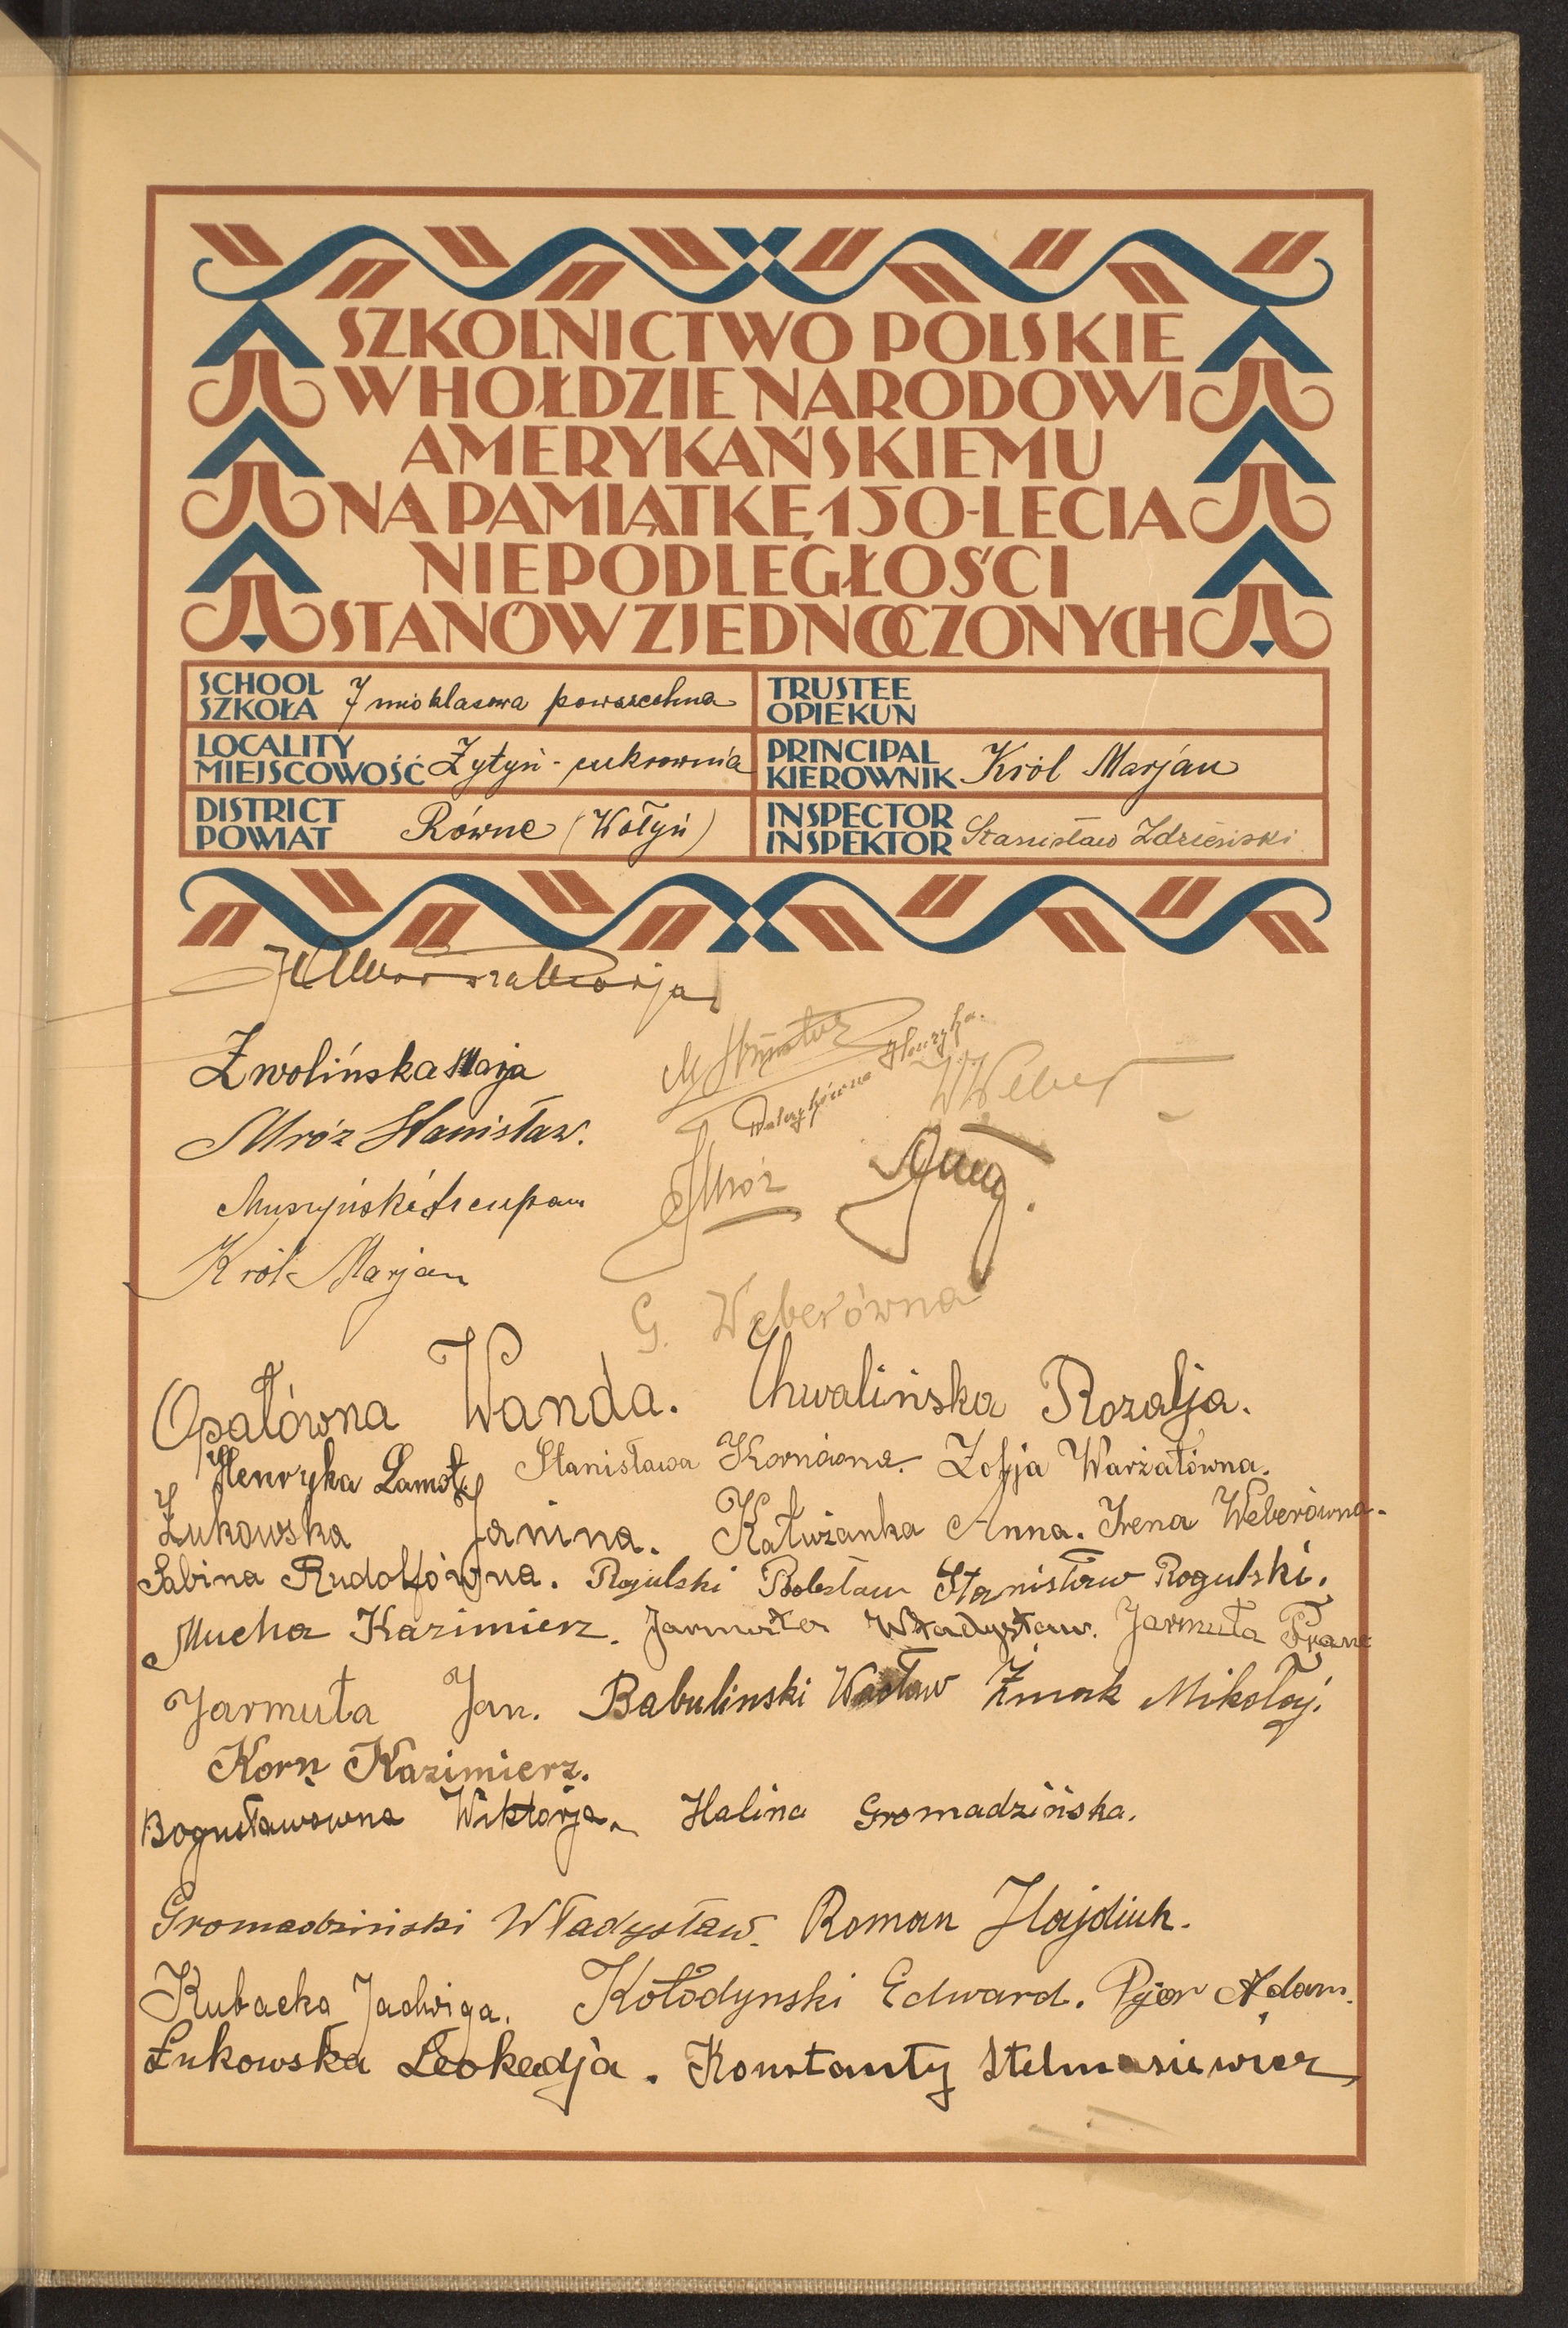 SZKOLNICTWO POLSKIE
W HOŁDZIE NARODOWI
AMERYKAŃSKIEMU
NA PAMIĄTKĘ 150-LECIA
NIEPODLEGŁOŚCI
STANÓW ZJEDNOCZONYCH
SCHOOL
SZKOŁA 7 mio klasowa powszechna
TRUSTEE
OPIEKUN
LOCALITY
MIEJSCOWOŚĆ Żytyń - cukrownia
PRINCIPAL
KIEROWNIK Król Marjan
DISTRICT
POWIAT Równe (Wołyń)
INSPECTOR
INSPEKTOR Stanisław Zdzieński
Zwolińska Maja
Mróz Stanisław.
Muszyński
Król Marjan
W Weber
Mróz
G. Weberówna
Opałówna Wanda. Chwalińska Rozalja.
Henryka Lamoty Stanisława Kornówna. Zofja Warżałówna.
Żukowska Janina. Kałużanka Anna. Irena Weberówna.
Sabina Rudolfówna. Rogulski Bolesław Stanisław Rogulski.
Mucha Kazimierz. Jarmuła Władysław. Jarmuła Franc
Jarmuła Jan. Babulinski Wacław Żmak Mikołaj.
Korn Kazimierz.
Bogusławówna Wiktorja. Halina Gromadzińska.
Gromadziński Władysław. Roman Hajdiuk.
Kubacka Jadwiga. Kołodynski Edward. Pjor Adam.
Łukowska Leokadja. Konstanty Stelmasiewicz